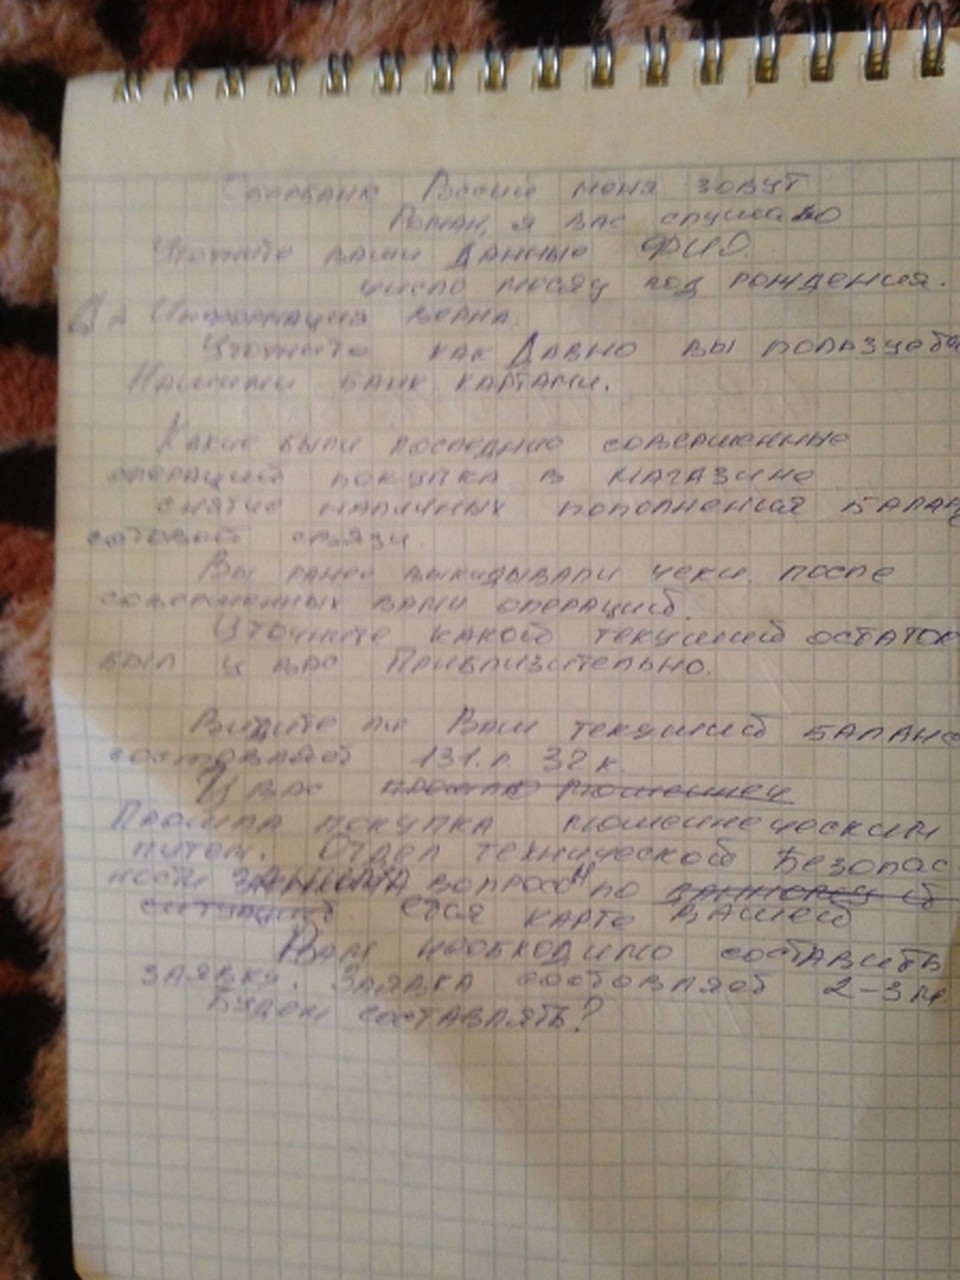 Сбербанк Росии меня зовут
Роман, я вас слушаю
Уточните ваши данные ФИО.
число месяц год рождения.
Да Информация верна.
Уточните как давно вы пользуете
Нашими банк картами.
Какие были последние совершенные
операций покупка в магазине
снятие наличных пополнения балан
сотовой связи.
Вы ранее выкидывали чеки после
совершенных вами операций.
Уточните какой текущий остаток
был у вас приблизительно.
Видите ли Ваш текущий баланс
состовляет 131.р 32 к.
У вас прошло мошеннеч
Прошла покупка мошеннеческим
путем. Отдел технической Безопас
ности вопросом по
ситуаций ется карте вашей
Вам необходимо составить
заявку. Заявка состовляет 2-3 м
Будем составлять?